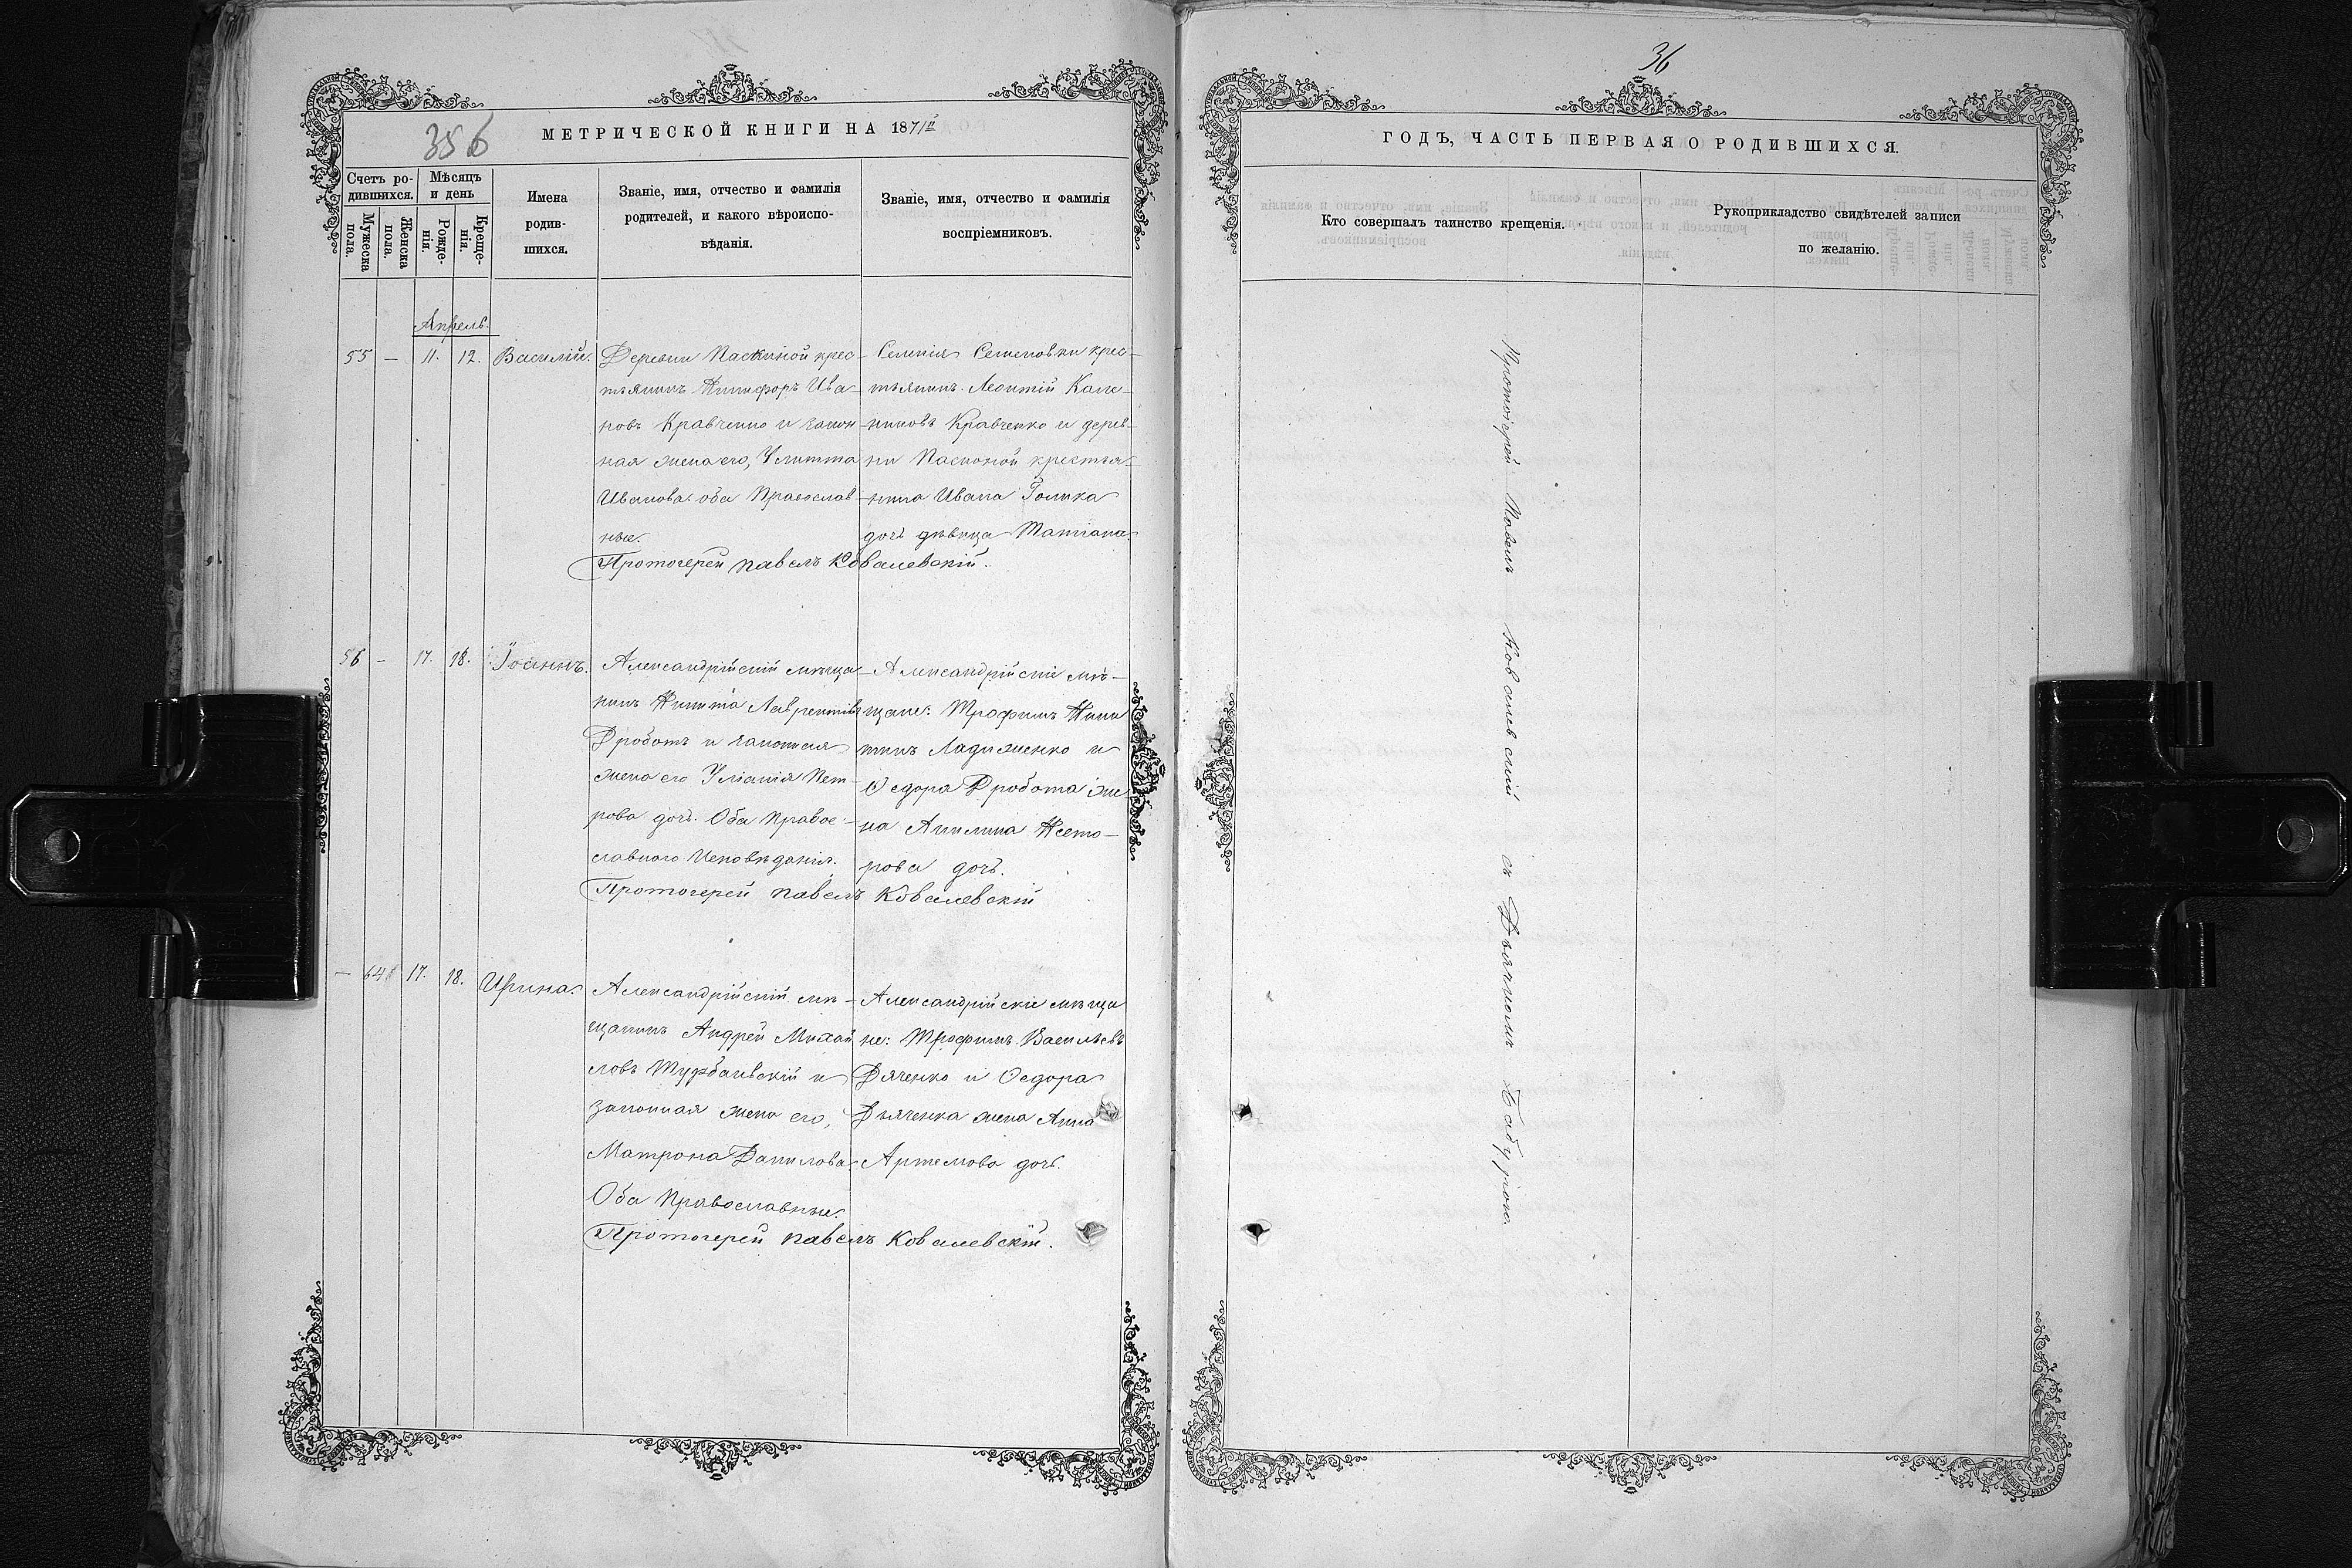 356
МЕТРИЧЕСКОЙ КНИГИ НА 1871й
Счетъ ро-
дившихся.
Мужеска
пола.
Женска
пола.
Мѣсяцъ
и день
Рожде-
нія.
Креще-
нія.
Имена
родив-
шихся.
Званіе, имя, отчество и фамилія
родителей, и какого вѣроиспо-
вѣданія.
Званіе, имя, отчество и фамилія
воспріемниковъ.
Апрель.
55 — 11. 12. Василій.
Деревни Паскиной крес-
тьянинъ Никифоръ Ива-
новъ Кравченко и закон
ная жена его, Улитта
Иванова. оба Православ-
ные.
Селенія Семеновки крес-
тьянинъ Леонтій Кале-
никовъ Кравченко и дерев-
ни крестья-
нина Ивана Голика
дочь дѣвица Татіана.
Протоіерей Павелъ Ковалевскій.
56 — 17. 18. Іоаннъ.
Александрійскій мѣща-
нинъ Никита Лаврентіевъ
Дроботъ и законная
жена его Уліанія Пет-
рова дочь. Оба Правос-
лавного Исповѣданія.
Александрійскіе мѣ-
щане: Трофимъ Ники
тинъ Ладыженко и
Ѳедора Дробота же
на Акилина Несто-
рова дочь.
Протоіерей Павелъ Ковалевскій
— 64 17. 18. Ирина.
Александрійскій мѣ-
щанинъ Андрей Михай
ловъ и
законная жена его,
Матрона Данилова.
Оба Православные.
Александрійскіе мѣща
не: Трофимъ Васильевъ
Дяченко и Ѳедора
Дьяченка жена Анна
Артемова дочь.
Протоіерей Павелъ Ковалевскій.
36
ГОДЪ, ЧАСТЬ ПЕРВАЯ О РОДИВШИХСЯ.
Кто совершалъ таинство крещенія.
Рукоприкладство свидѣтелей записи
по желанію.
Протоіерей Павелъ Ковалевскій съ Дьячкомъ Бабурою.